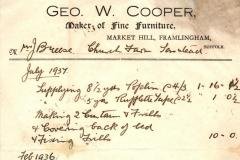 GEO. W. COOPER,
Maker of Fine Furniture,
MARKET HILL, FRAMLINGHAM,
SUFFOLK.
Mr J Breese Church Farm
July 1937
Supplying 8½ yds Poplin @ 4/3 1-16-1½
5 yds Rufflette Tape @ 2½ 1-0½
Making 2 Curtains & Frills
& Covering back of bed
& Fixing Frills 10-0
Feb 1936